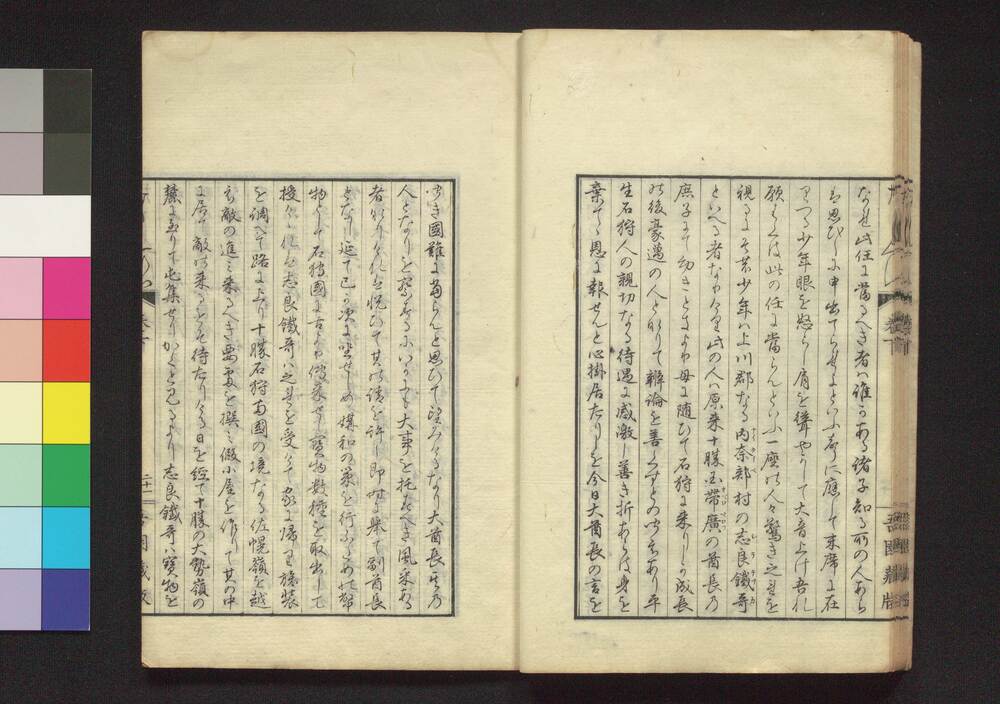 なせ此任に當るへき者ハ誰かある諸子知る所の人あら
は思ひしに申出てらせよといふ聲に應して末席に在
りつる少年眼を怒らし肩を聳やかして大音上け吾れ
願くハ此の任に當らんといふ一座の人々驚き之を
視るに其少年ハ上川郡なる内奈部村の志良鐵奇
といへる者なりけり此の人ハ原来十勝国帯廣の酋長の
庶子にて幼きときより母に随ひて石狩に来りしか成長
の後豪邁の人となりて辯論を善くすとの聞えあり平
生石狩人の親切なる待遇に感激し善き折あらは身を
棄てゝ恩に報せんと心掛居たりしを今日大酋長の言を
聞き國難に當らんと思ひて望みけるなり大酋長其の
人となりを察するにいかにも大事を托すへき風采ある
者なりけれは悦ひて其の請を許し即時に舉て副酋長
となし延て己か次に坐せしめ媾和の策を行ふ
物として石狩國に古より傳来せる寳物数種を取出して
授けけれは志良鐵奇ハ之を受けて家に帰り旅装
を調へて路に上り十勝石狩両國の境なる佐幌嶺を越
え敵の進み来るへき要處を撰み假小屋を作りて其の中
に居て敵の来るをそ待たりける日を經て十勝の大勢嶺の
麓に至りて屯集せりかくと見るより志良鐵奇ハ寳物を